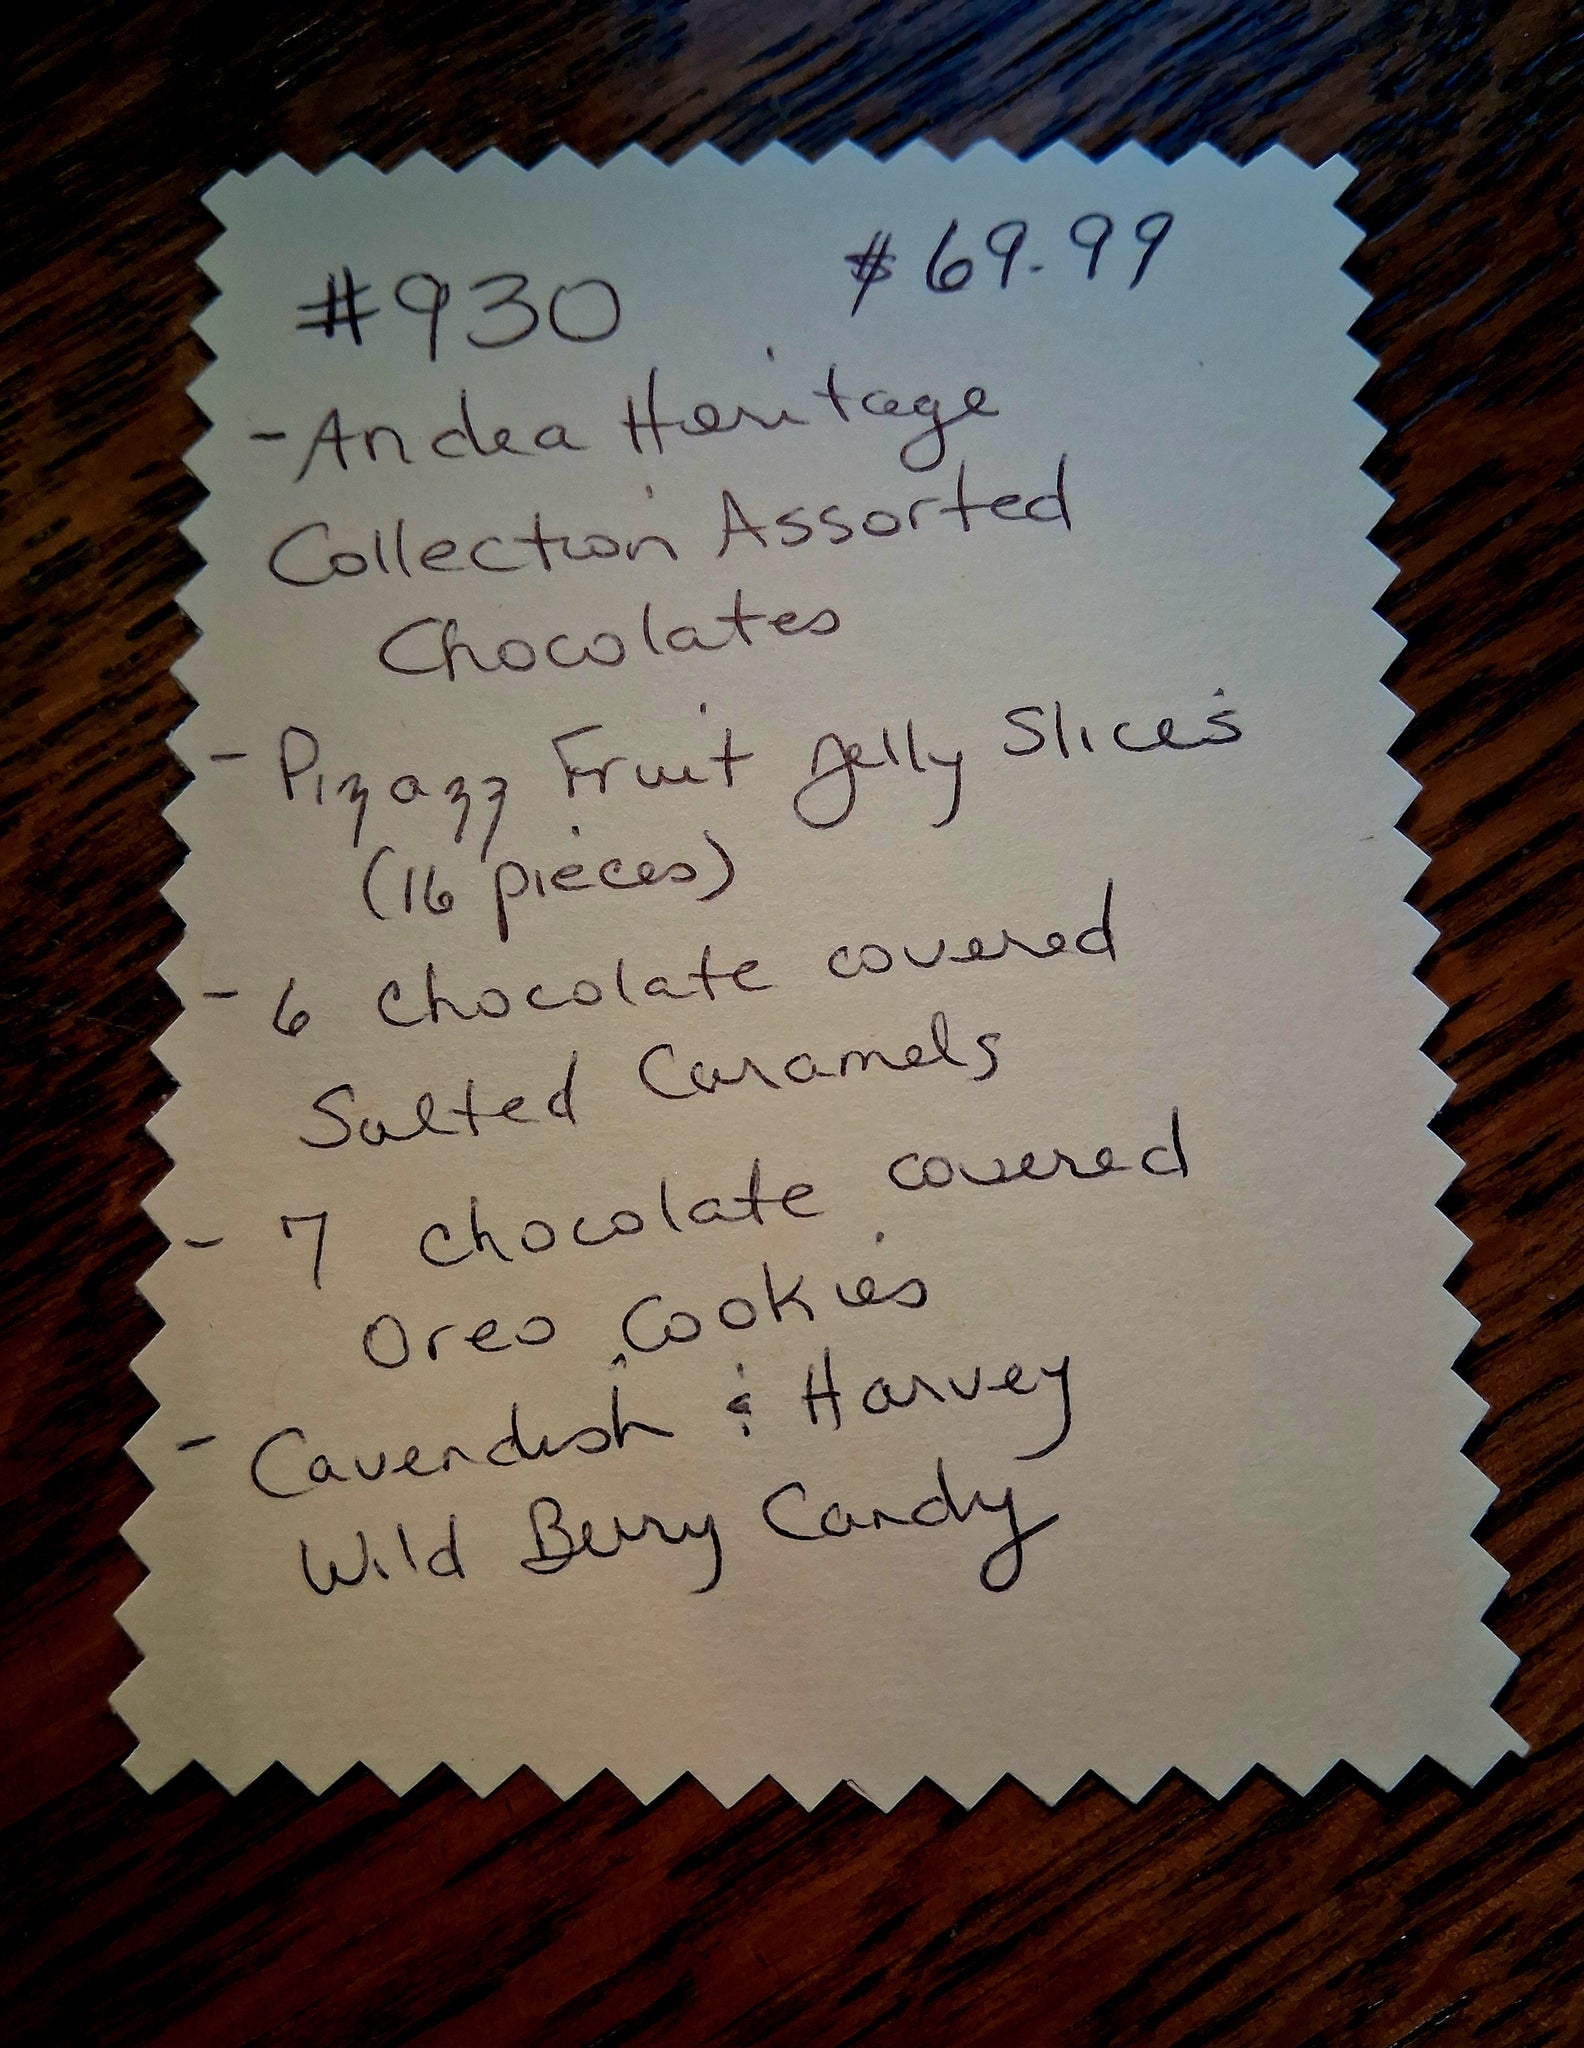 #930 $69.99
- Andea Heritage
Collection Assorted
Chocolates
- Pizazz Fruit Jelly Slices
(16 pieces)
- 6 chocolate covered
Salted Caramels
- 7 chocolate covered
Oreo Cookies
- Cavendish & Harvey
Wild Berry Candy